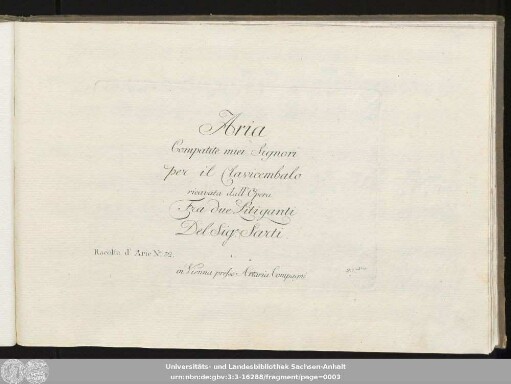 Aria
Compatite miei Signori
per il Clavicembalo
ricavata dall'Opera
Fra due Litiganti
Del Sigr. Sarti
Racolta d'Arie No. 32.
in Vienna presso Artaria Compagni
Universitäts- und Landesbibliothek Sachsen-Anhalt
urn:nbn:de:gbv:3:3-16288/fragment/page=0003